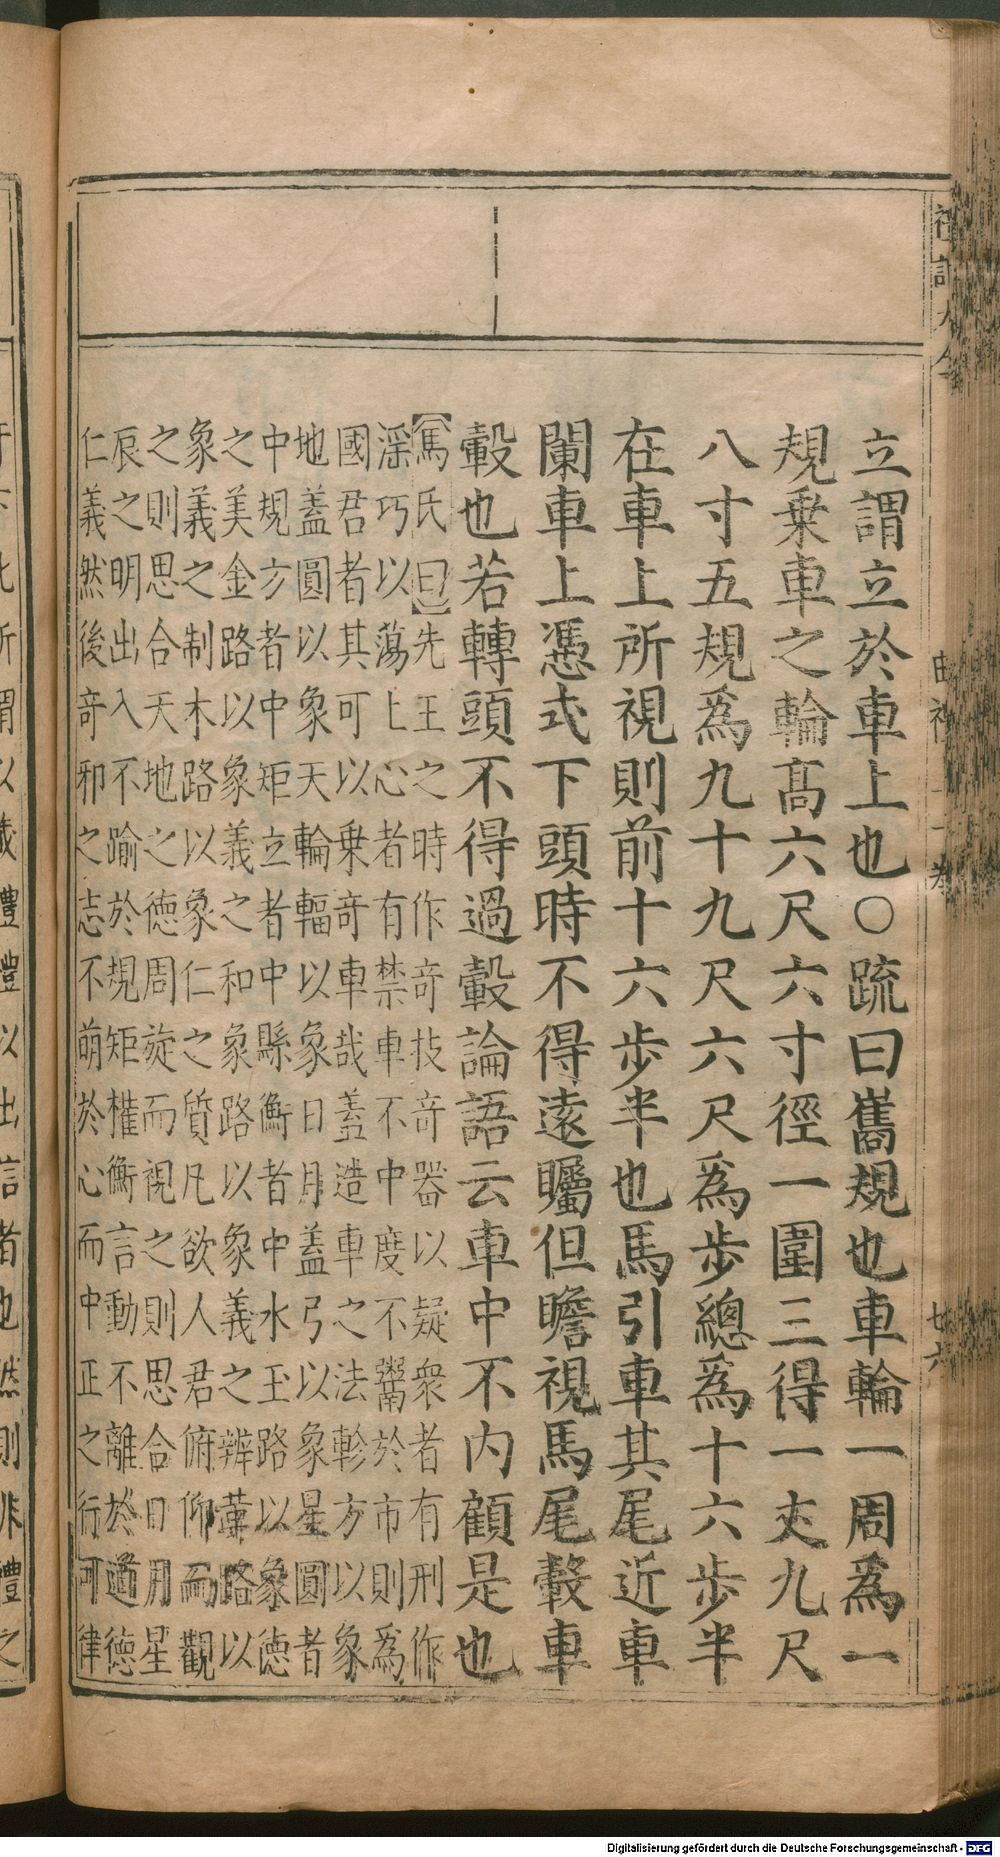 立謂立於車上也○疏曰巂規也車輪一周爲一
規乗車之輪髙六尺六寸徑一圍三得一丈九尺
八寸五規爲九十九尺六尺爲歩總爲十六歩半
在車上所視則前十六歩半也馬引車其尾近車
闌車上憑式下頭時不得遠矚但瞻視馬尾轂車
轂也若轉頭不得過轂論語云車中不内顧是也
【馬氏曰】先王之時作竒技竒器以疑衆者有刑作
滛巧以蕩上心者有禁車不中度不鬻於市則爲
國君者其可以乗竒車哉蓋造車之法軫方以象
地蓋圓以象天輪輻以象日月蓋弓以象星圓者
中規方者中矩立者中縣衡者中水玉路以象徳
之美金路以象義之和象路以象義之辨革路以
象義之制木路以象仁之質凡欲人君俯仰而觀
之則思合天地之徳周旋而視之則思合日月星
辰之明出入不踰於規矩權衡言動不離於道徳
仁義然後竒邪之志不萌於心而中正之行可律
曲禮上一卷
七六
所謂以
禮禮以出信者也然則非禮之
Digitalisierung gefördert durch die Deutsche Forschungsgemeinschaft - DFG